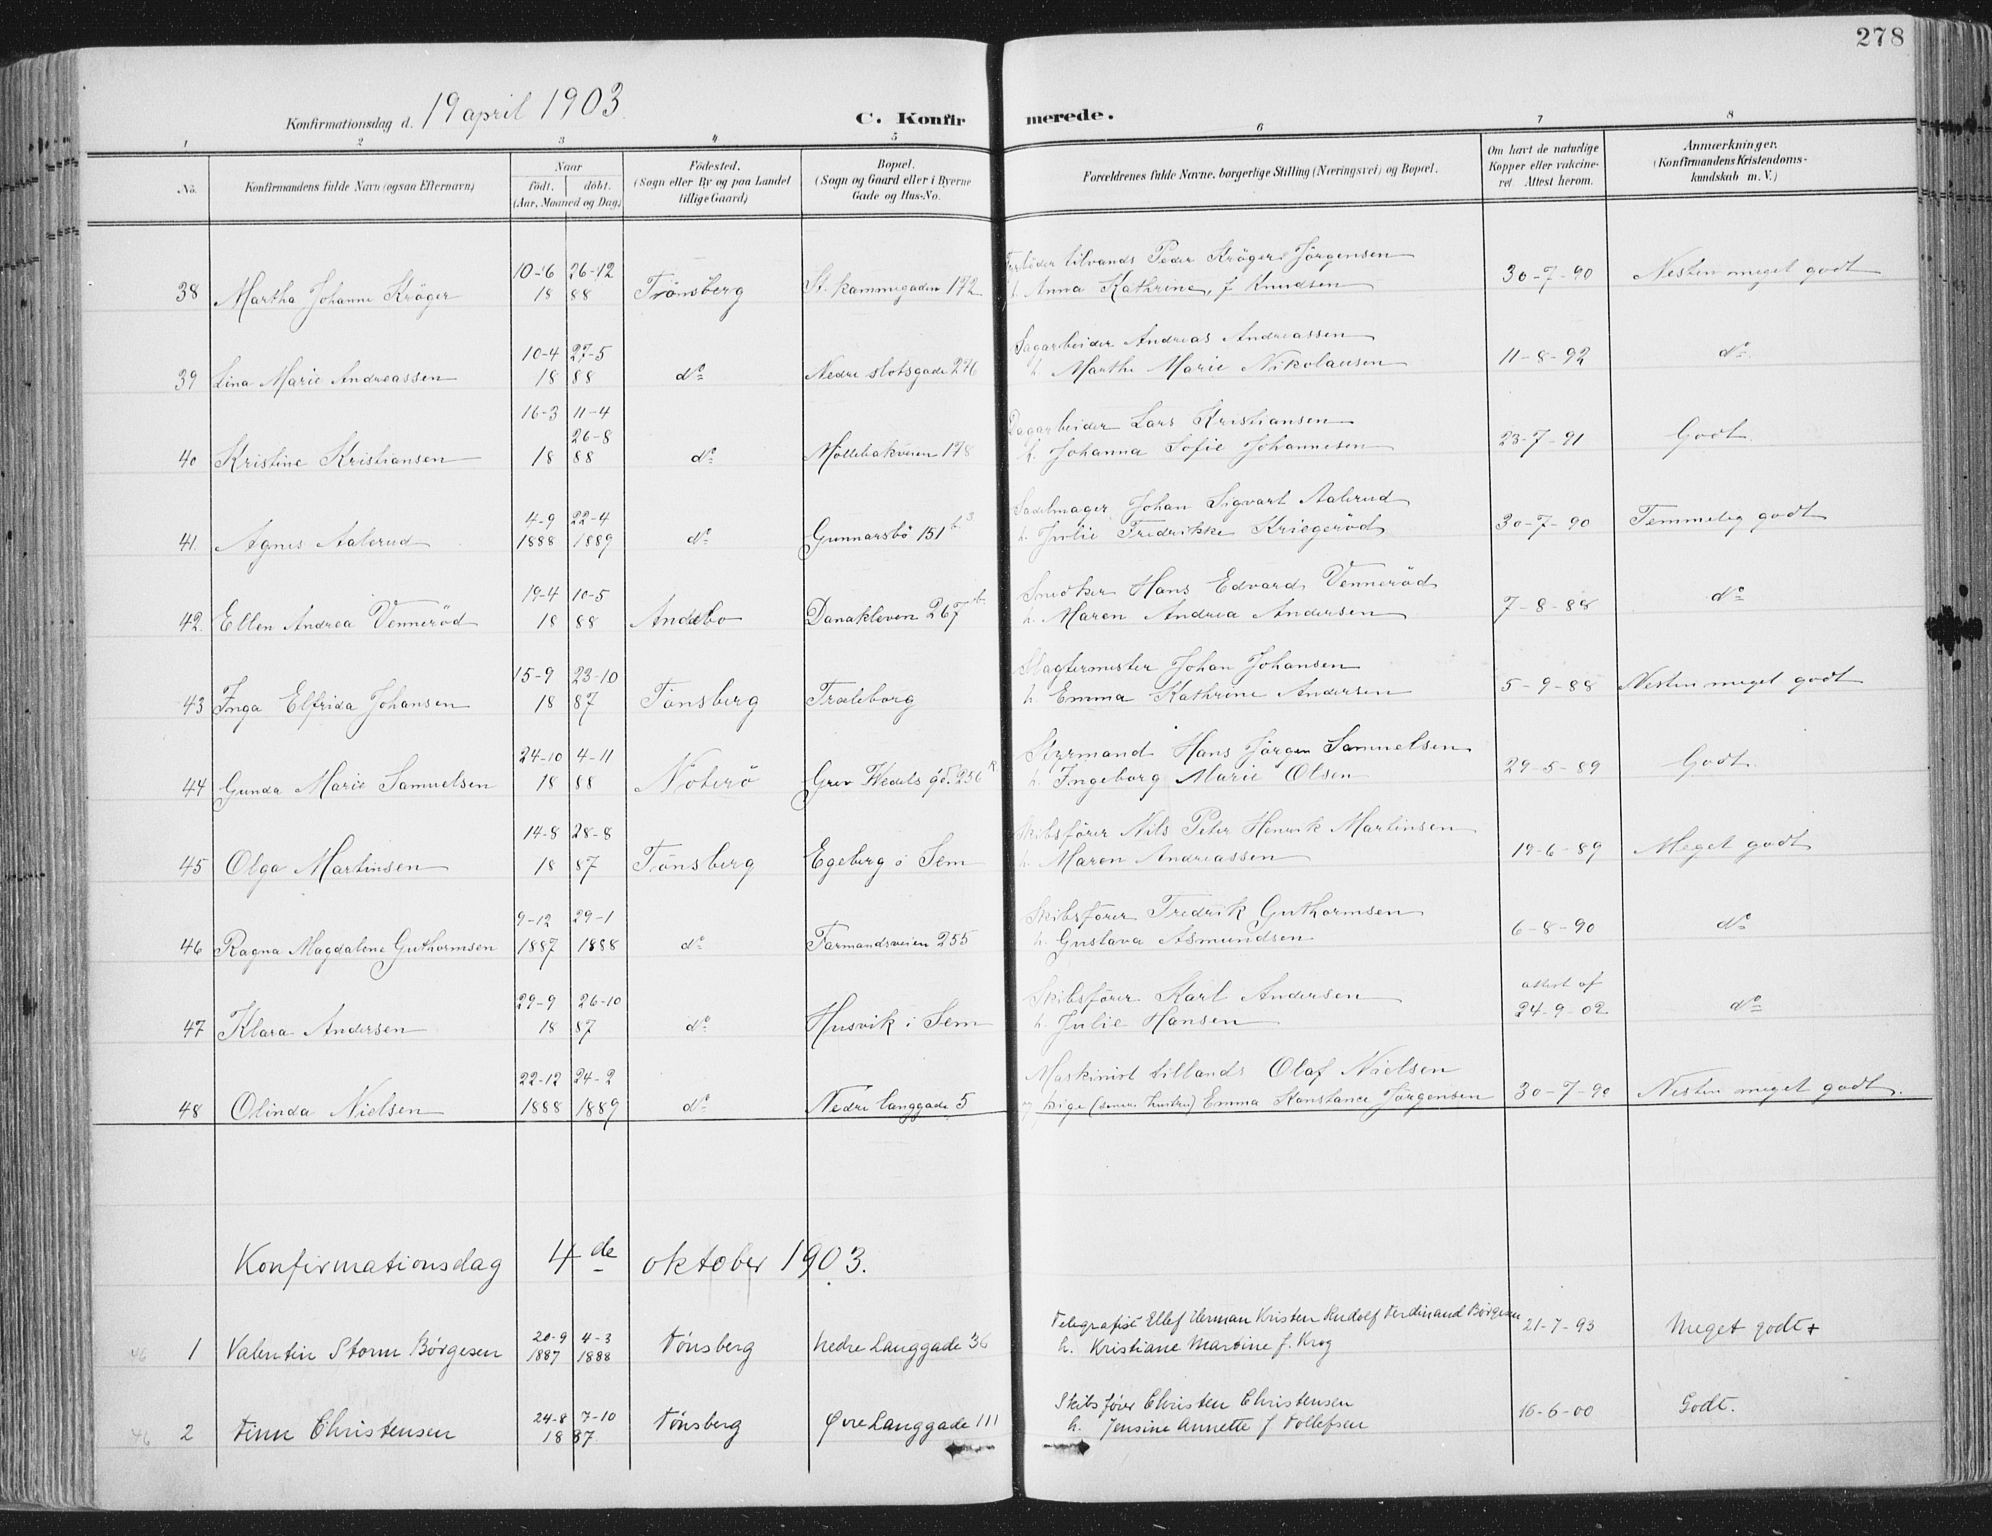 278
Konfirmationsdag d. 19 april 1903.
C. Konfirmerede.
1 2 3 4 5 6 7 8
No.
Konfirmandens fulde Navn (ogsaa Efternavn)
Naar
født. døbt.
(Aar, Maaned og Dag)
Fødested.
(Sogn eller By og paa Landet
tillige Gaard)
Bopæl.
(Sogn og Gaard eller i Byerne
Gade og Hus-No.
Forældrenes fulde Navne, borgerlige Stilling (Næringsvei) og Bopæl.
Om havt de naturlige
Kopper eller vakcine-
ret. Attest herom.
Anmærkninger.
(Konfirmandens Kristendoms-
kundskab m. V.)
10-6 26-12 tilvands Peder Krøger Jørgensen
38 Martha Johanne Krøger 18 88 Tønsberg St. 172 h. Anna Kathrine, f. Knudsen 30-7-90 Nesten meget godt
10-4 27-5 Sagarbeider Andreas Andreassen
39 Lina Marie Andreassen 18 88 do Nedre slotsgade 276 h. Marthe Marie Nikolausen 11-8-92 do
16-3 11-4 Dagarbeider Lars Kristiansen
26-8
40 Kristine Kristiansen 18 88 do Møllebakveien 178 h. Johanna Sofie Johannesen 23-7-91 Godt
4-9 22-4 Sadelmager Johan Sigvart Aalerud
41. Agnes Aalerud 1888 1889 do Gunnarsbø 151 b 3 h. Julie Fredrikke Kriegerød 30-7-90 Temmelig godt
19-4 10-5 Snedker Hans Edvard Vennerød
42. Ellen Andrea Vennerød 18 88 Andebo Danakleven 267 b. h. Maren Andrea Andersen 7-8-88 do
15-9 23-10 Slagtermester Johan Johansen
43 Inga Elfrida Johansen 18 87 Tønsberg Træleborg h. Emma Kathrine Andersen 5-9-88 Nesten meget godt
24-10 4-11 Styrmand Hans Jørgen Samuelsen
44 Gunda Marie Samuelsen 18 88 Nøterø Grev Wedels gd. 256 h. Ingeborg Marie Olsen 29-5-89 Godt.
14-8 28-8 Skibsfører Nils Peter Henrik Martinsen
45 Olga Martinsen 18 87 Tønsberg Egeberg i Sem h. Maren Andreassen 19-6-89 Meget godt
9-12 29-1 Skibsfører Fredrik Guthormsen
46 Ragna Magdalene Guthormsen 1887 1888 do Farmandsveien 255 h. Gustava Asmundsen 6-8-90 do
29-9 26-10 Skibsfører Karl Andersen attest af
47 Klara Andersen 18 87 do Husvik i Sem h. Julie Hansen 24-9-02 do
22-12 24-2 Maskinist tillands Olaf Nielsen
48 Olinda Nielsen 1888 1889 do Nedre langgade 5 og pige (senere hustru) Emma Konstance Jørgensen 30-7-90 Nesten meget godt.
Konfirmationsdag 4 de oktober 1903.
20-9 4-3 Telegrafist Ellef Herman Kristen Rudolf Ferdinand Børgesen
46 1 Valentin Storm Børgesen 1887 1888 Tønsberg Nedre Langgade 36 h. Kristiane Martine f. Krog 21-7-93 Meget godt+
24-8 7-10 Skibsfører Christen Christensen
46 2 Finn Christensen 18 87. Tønsberg Øvre Langgade 111 h. Jensine Annette f Tollefsen 16-6-00 Godt.